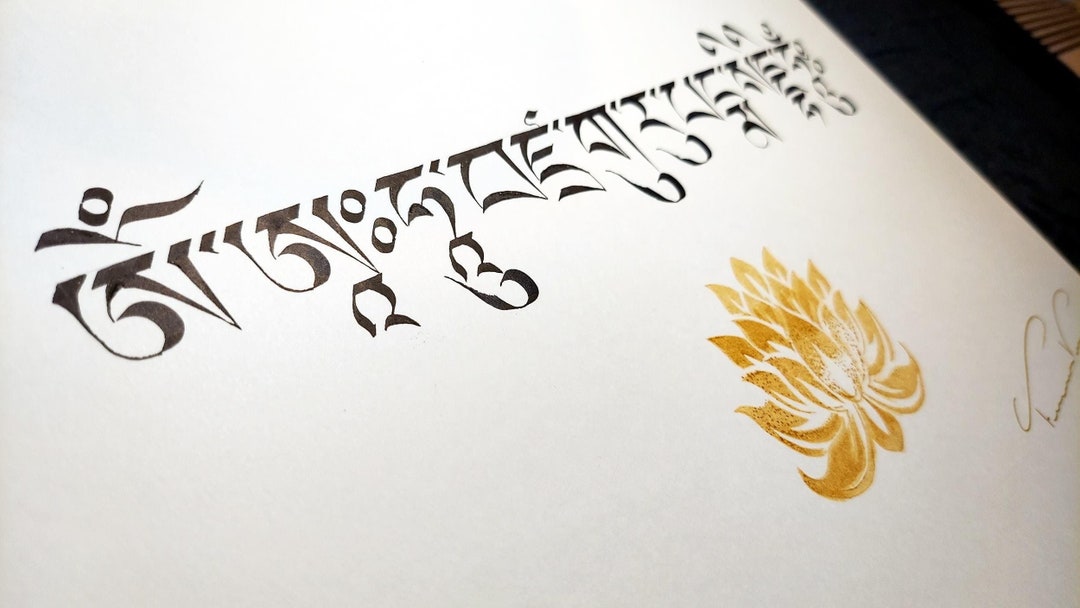 ཨོཾ་ཨཱཿཧཱུྃ་བཛྲ་གུ་རུ་པདྨ་སིདྡྷི་ཧཱུྃ